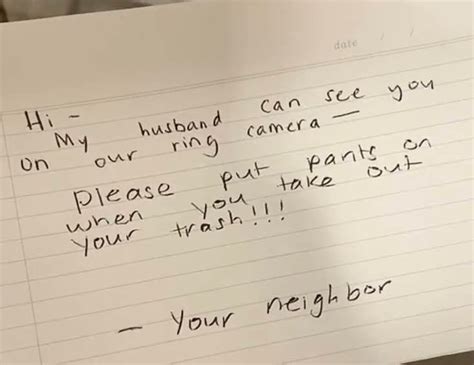 date / /
Hi -
My husband can see you
on our ring camera —
please put pants on
when you take out
your trash!!!
— Your neighbor